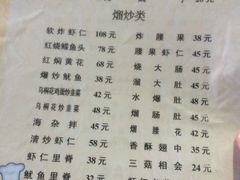 38元
40元
熘炒类
软炸虾仁 108元
炸腰果 38元
红烧鲤鱼头 78元
腰果虾仁 45元
红焖黄花 68元
烧大肠 45元
爆炒鱿鱼 38元
溜大肚 45元
乌桐花鸡蛋炒韭菜 42元
水爆肚 48元
乌桐花炒韭菜 48元
熘肚 48元
海杂拌 45元
熘腰花 42元
清炒虾仁 58元
香酥翅中 35元
虾仁里脊 38元
三菇相会 24元
鱿鱼里脊 32元